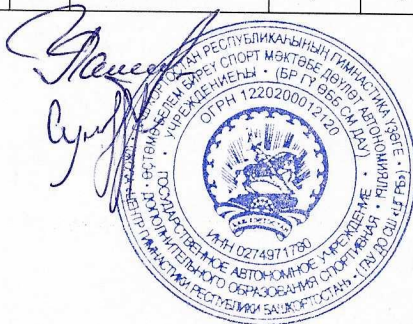 БАШҠОРТОСТАН РЕСПУБЛИКАҺЫНЫҢ ГИМНАСТИКА ҮҘӘГЕ •
ӨҪТӘМӘ БЕЛЕМ БИРЕҮ СПОРТ МӘКТӘБЕ ДӘҮЛӘТ АВТОНОМИЯЛЫ
УЧРЕЖДЕНИЕҺЫ • (БР ГҮ ӨББ СМ ДАУ)
ОГРН 1220200012120
ИНН 0274971780
ГОСУДАРСТВЕННОЕ АВТОНОМНОЕ УЧРЕЖДЕНИЕ
ДОПОЛНИТЕЛЬНОГО ОБРАЗОВАНИЯ СПОРТИВНАЯ
ЦЕНТР ГИМНАСТИКИ РЕСПУБЛИКИ БАШКОРТОСТАН • (ГАУ ДО СШ